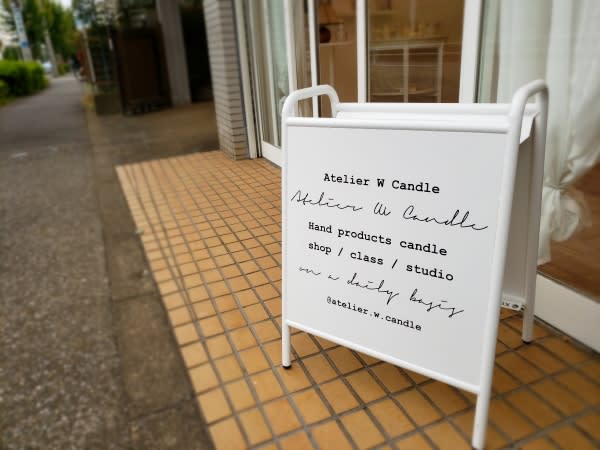 Atelier W Candle
Atelier W Candle
Hand products candle
shop / class / studio
on a daily basis
@atelier.w.candle